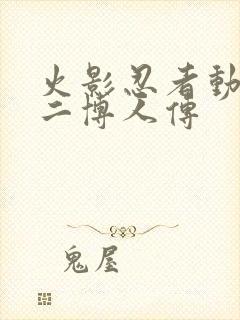 火影忍者動
二博人傳
鬼屋